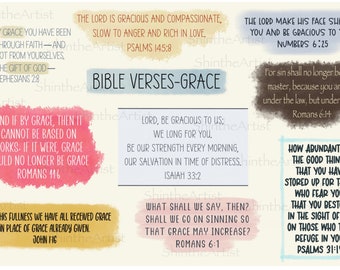 BY GRACE YOU HAVE BEEN
THROUGH FAITH — AND
NOT FROM YOURSELVES,
THE GIFT OF GOD —
EPHESIANS 2:8
THE LORD IS GRACIOUS AND COMPASSIONATE,
SLOW TO ANGER AND RICH IN LOVE.
PSALMS 145:8
THE LORD MAKE HIS FACE SHI
YOU AND BE GRACIOUS TO Y
NUMBERS 6:25
BIBLE VERSES-GRACE
For sin shall no longer be
master, because you a
under the law, but und
Romans 6:14
AND IF BY GRACE, THEN IT
CANNOT BE BASED ON
WORKS; IF IT WERE, GRACE
WOULD NO LONGER BE GRACE
ROMANS 11:6
LORD, BE GRACIOUS TO US;
WE LONG FOR YOU,
BE OUR STRENGTH EVERY MORNING,
OUR SALVATION IN TIME OF DISTRESS.
ISAIAH 33:2
HOW ABUNDANT
THE GOOD THIN
THAT YOU HAV
STORED UP FOR T
WHO FEAR YOU
THAT YOU BESTO
IN THE SIGHT OF
ON THOSE WHO T
REFUGE IN YOU
PSALMS 31:19
HIS FULLNESS WE HAVE ALL RECEIVED GRACE
IN PLACE OF GRACE ALREADY GIVEN.
JOHN 1:16
WHAT SHALL WE SAY, THEN?
SHALL WE GO ON SINNING SO
THAT GRACE MAY INCREASE?
ROMANS 6:1
ShintheArtist